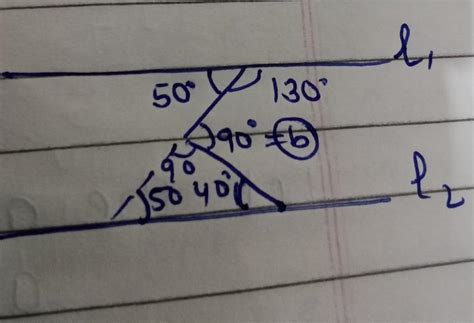 l₁
50° 130°
90° = b
90
50 40°
l₂